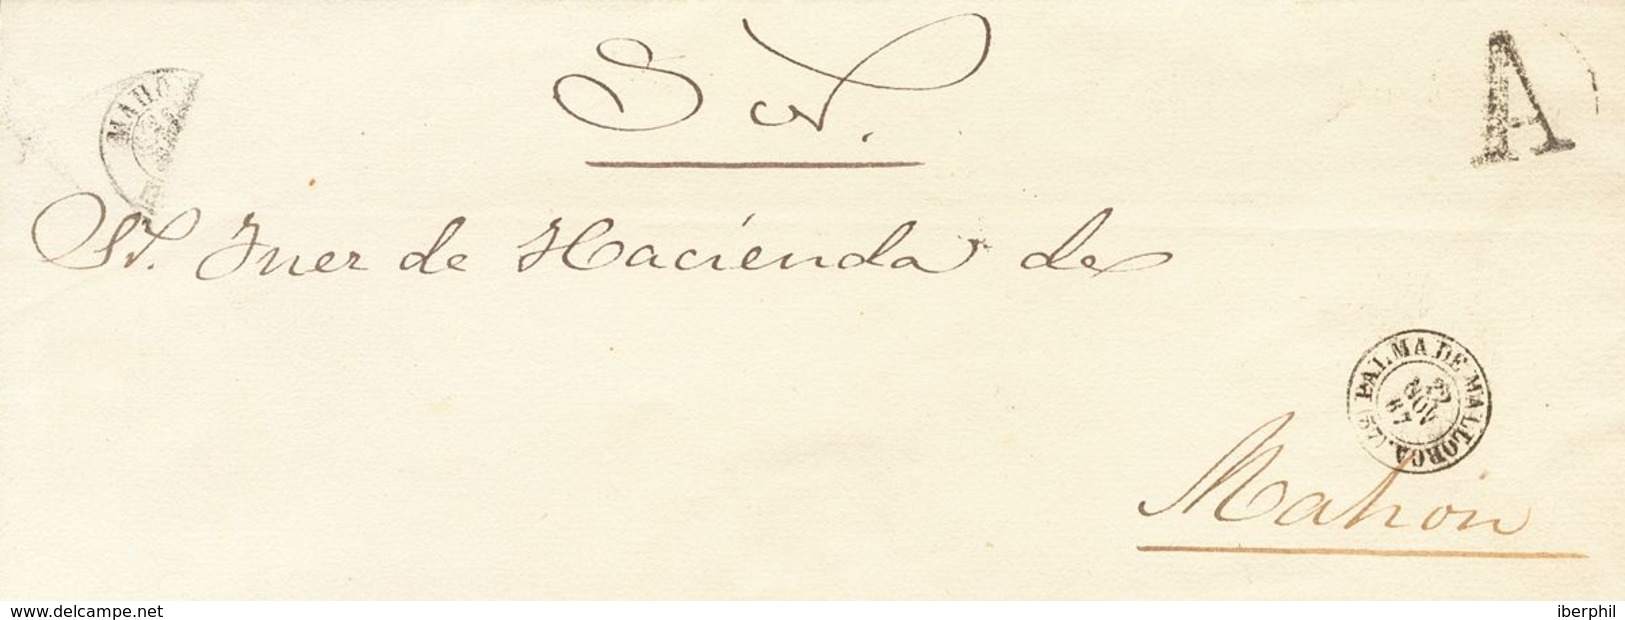 S. N.
A
MAHO
Sr. Juez de Hacienda de
PALMA DE MALLORCA. (29)
22
NOV
67
Mahon
www.delcampe.net
iberphil